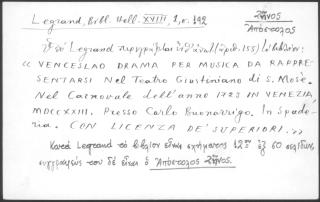 Legrand, Bibl. Hell. XVIII, 1, σ. 192
Ζῆνος
Ἀπόστολος
Ὁ Legrand περιγράφει
« VENCESLAO DRAMA PER MUSICA DA RAPPRE
SENTARSI Nel Teatro Giustoniano di S. Mosè.
Nel Carnovale dell'anno 1723 IN VENEZIA,
MDCCXXIII. Presso Carlo Buonarrigo. In Spade-
ria. CON LICENZA DE' SUPERIORI. »
Κατὰ Legrand τὸ βιβλίον εἶναι σχήματος 12ου ἐξ 60 σελίδων,
συγγραφεὺς του δὲ εἶναι ὁ Ἀπόστολος Ζῆνος.